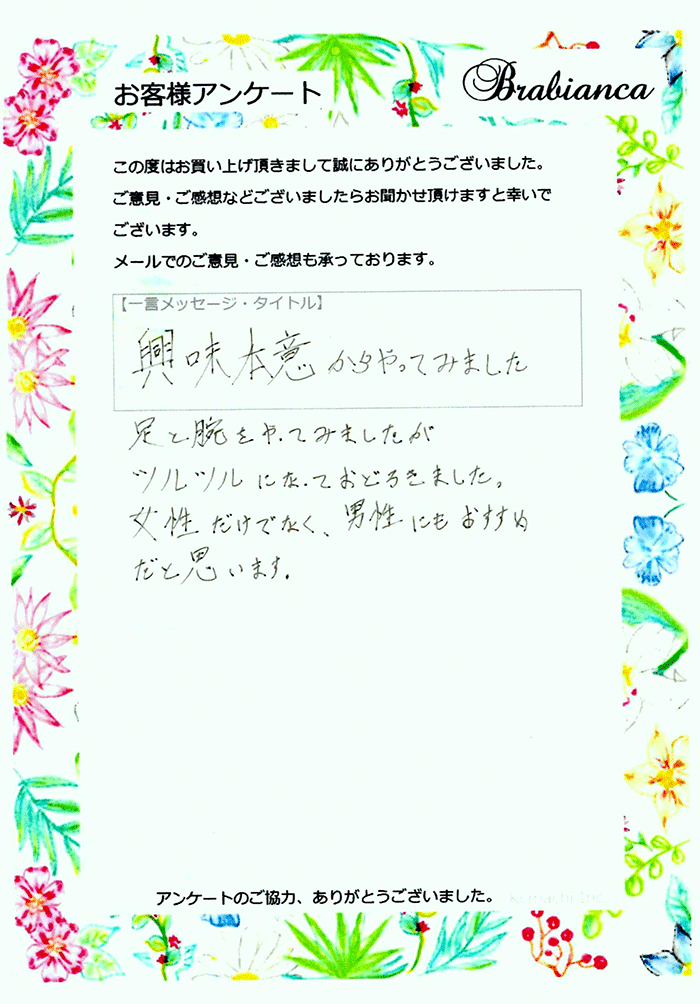 お客様アンケート
Brabianca
この度はお買い上げ頂きまして誠にありがとうございました。
ご意見・ご感想などございましたらお聞かせ頂けますと幸いで
ございます。
メールでのご意見・ご感想も承っております。
【一言メッセージ・タイトル】
興味本意からやってみました
足と腕をやってみましたが
ツルツルになっておどろきました。
女性だけでなく、男性にもおすすめ
だと思います。
アンケートのご協力、ありがとうございました。
Komachi Inc.